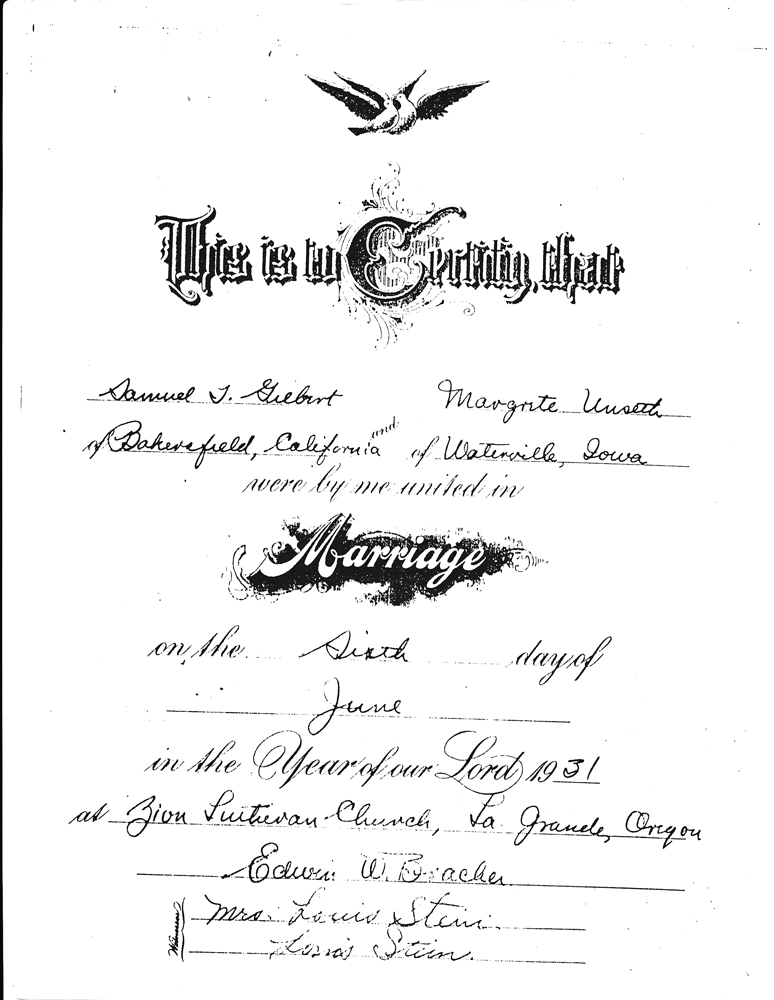 This is to Certify, that
Samuel J. Giebert Margrite Unseth
and
of Bakersfield, California of Waterville, Iowa
were by me united in
Marriage
on the Sixth day of
June
in the Year of our Lord 1931
at Zion Lutheran Church, La Grande, Oregon
Edwin W.
Mrs. Louis Stein.
Louis Stein.
Witnesses